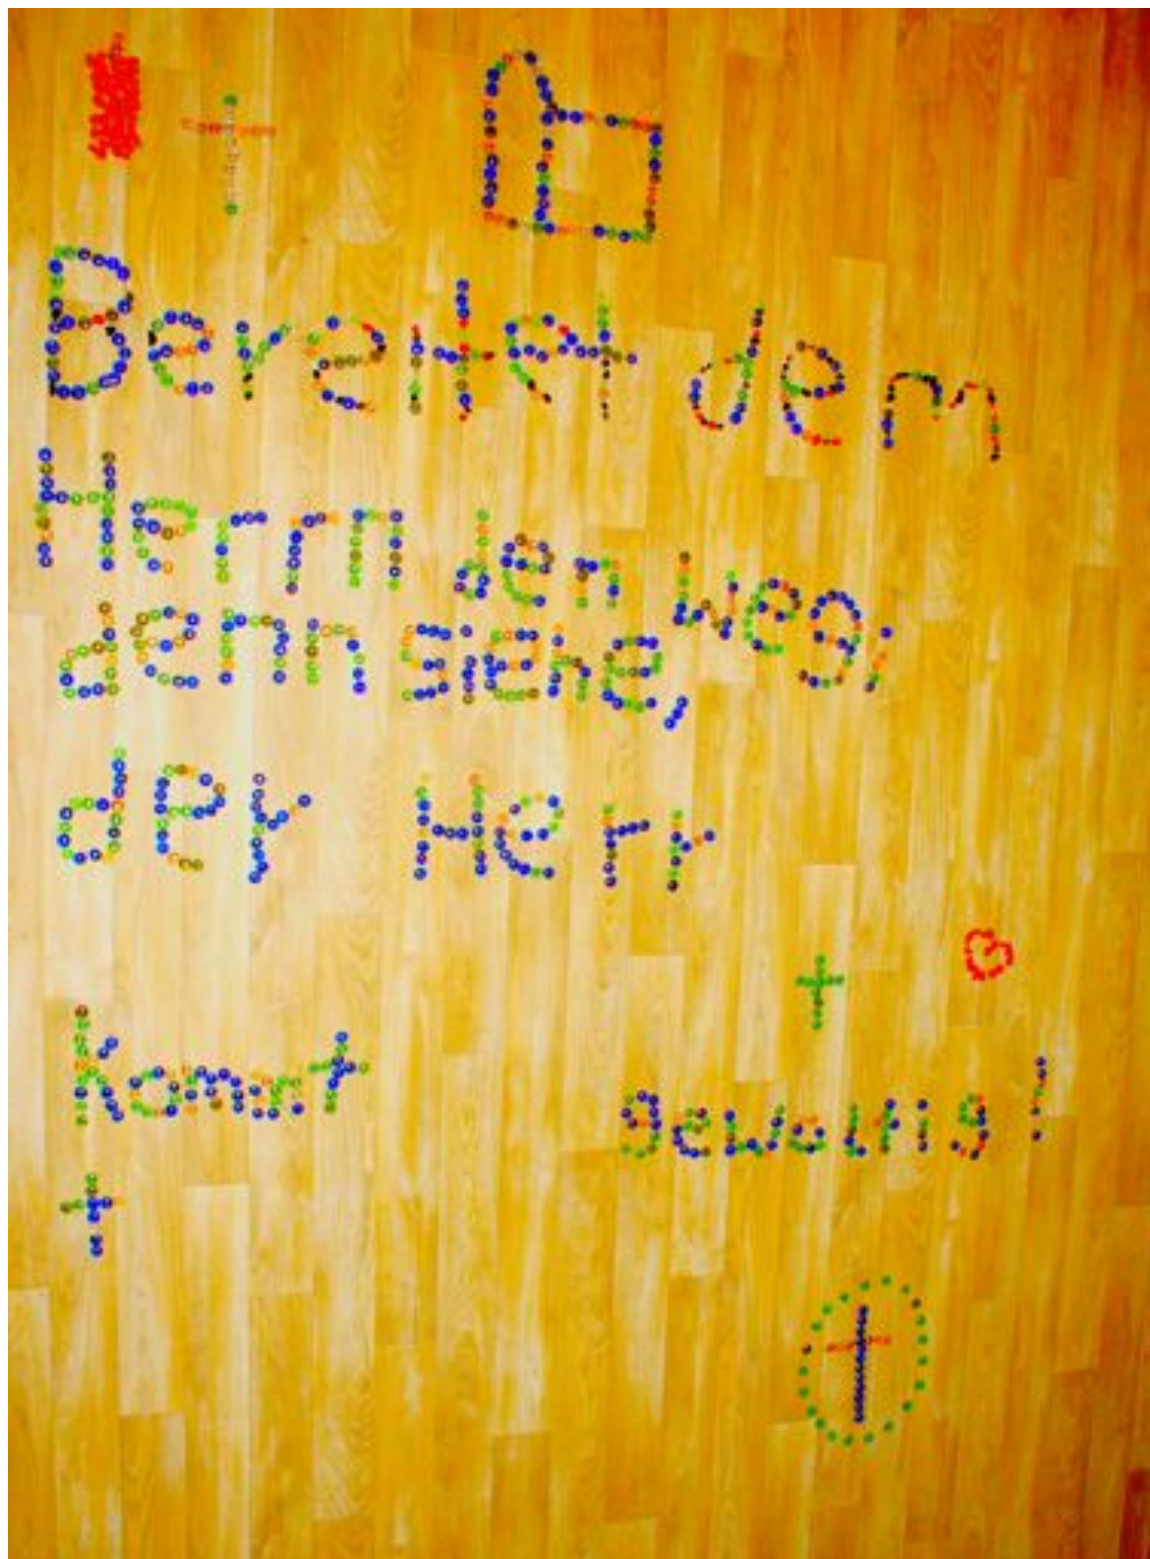 Bereitet dem
Herrn den Weg!
denn siehe,
der Herr
Kommt
gewaltig!